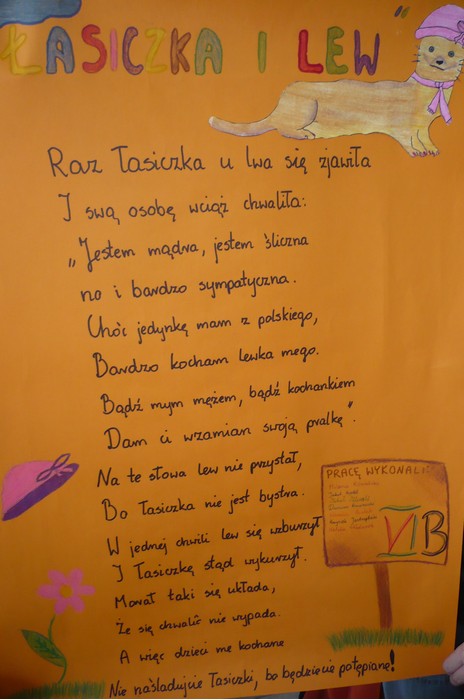 ŁASICZKA I LEW"
Raz Łasiczka u lwa się zjawiła
I swą osobę wciąż chwaliła:
„Jestem mądra, jestem śliczna
no i bardzo sympatyczna.
Chóc jedynkę mam z polskiego,
Bardzo kocham lewka mego.
Bądź mym mężem, bądź kochankiem
Dam ci wzamian swoją pralkę".
Na te słowa lew nie przystał,
Bo Łasiczka nie jest bystra.
W jednej chwili lew się wzburzył
I Łasiczkę stąd wykurzył.
Morał taki się układa,
Że się chwalić nie wypada.
A więc dzieci me kochane
Nie naśladujcie Łasiczki, bo będziecie potępiane!
PRACĘ WYKONALI:
VI B